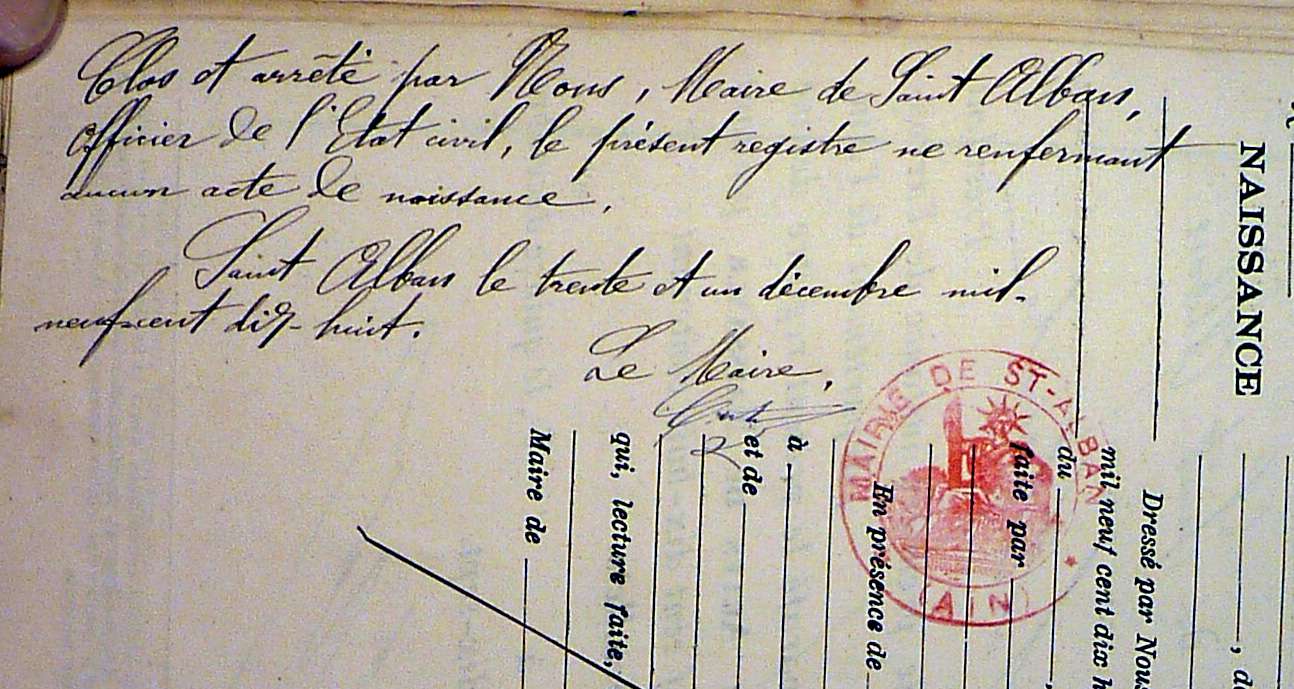 Clos et arrêté par Nous, Maire de Saint Alban,
Officier de l'Etat civil, le présent registre ne renfermant
aucun acte de naissance.
Saint Alban le trente et un décembre mil-
neuf-cent dix-huit.
Le Maire,
MAIRIE DE ST-ALBAN
(AIN)
NAISSANCE
, d
Dressé par Nous
mil neuf cent dix h
du
faite par
En présence de
à
et de
qui, lecture faite,
Maire de